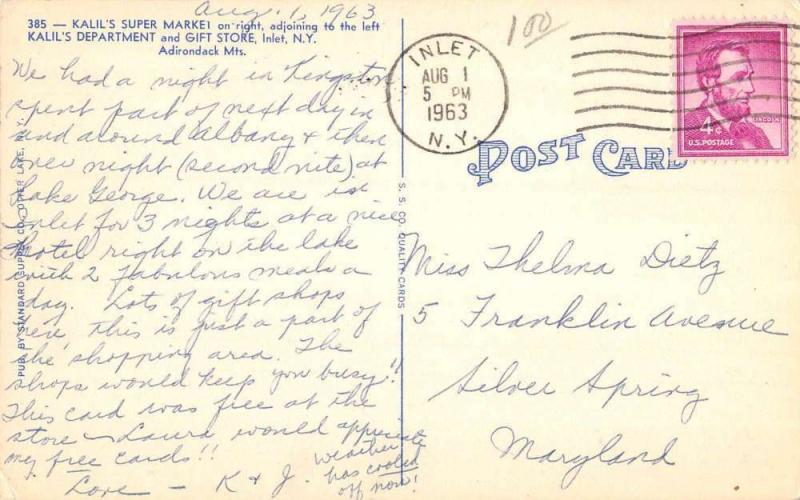 Aug. 1, 1963
385 — KALIL'S SUPER MARKET on right, adjoining to the left
KALIL'S DEPARTMENT and GIFT STORE, Inlet, N.Y.
Adirondack Mts.
We had a night in Kingston
spent part of next day in
and around Albany & then
one night (second nite) at
Lake George. We are in
Inlet for 3 nights at a nice
motel right on the lake
with 2 fabulous meals a
day. Lots of gift shops
here, this is just a part of
the shopping area. The
shops would keep you busy!!
This card was free at the
store — Laura would appreciate
my free cards!!
Love — K & J.
weather
has cooled
off now!
PUB. BY STANDARD SUPPLY CO., OTTER LAKE, N.Y.
S. S. CO. QUALITY CARDS
1.00
INLET
AUG 1
5 PM
1963
N.Y.
LINCOLN
4¢
U.S. POSTAGE
POST CARD
Miss Thelma Dietz
5 Franklin Avenue
Silver Spring
Maryland